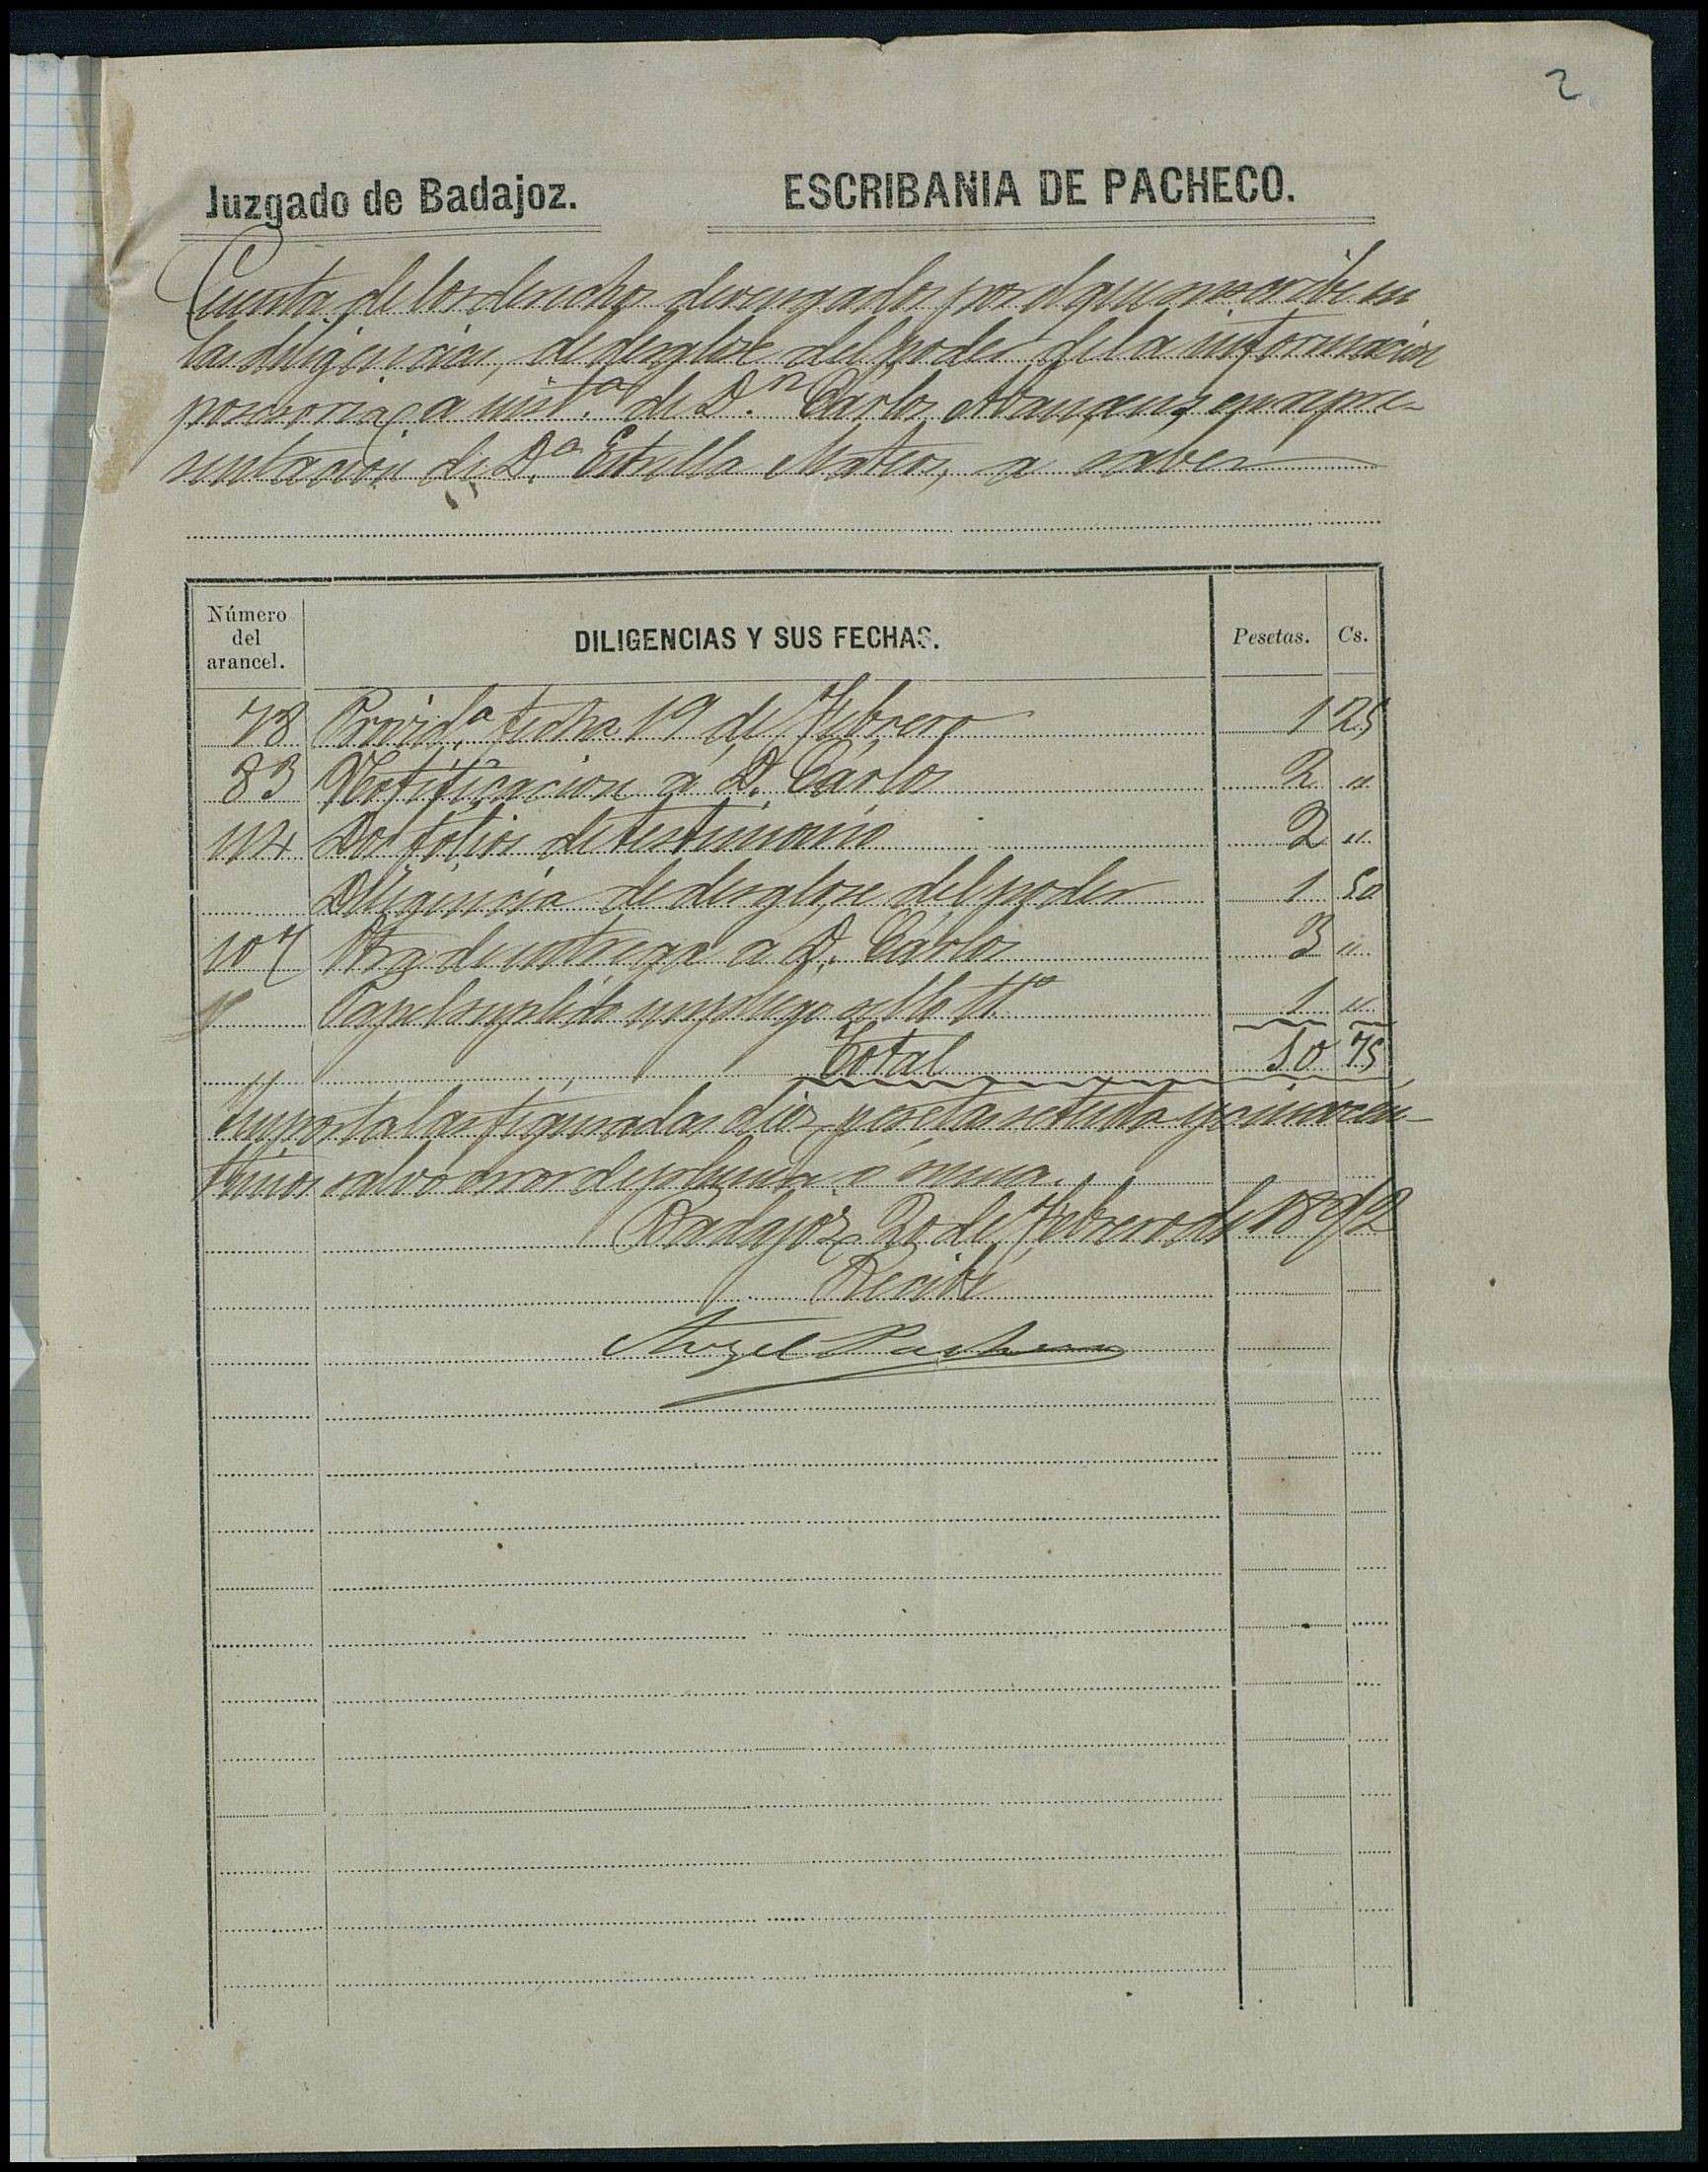 2
Juzgado de Badajoz. ESCRIBANIA DE PACHECO.
Cuenta de los derechos devengados por el que suscribe en
las diligencias, de desglose del poder de la informacion
posesoria, a inst.ª de D.n Cárlos en repre-
sentacion de D.ª Estrella Mateos, a saber
Número del arancel. DILIGENCIAS Y SUS FECHAS. Pesetas. Cs.
78 Provid.ª fecha 19 de Febrero 1 25
83 Notificacion a D. Cárlos 2 "
114 Dos folios de testimonio 2 "
Diligencia de desglose del poder 1 50
107 Otra de entrega a D. Cárlos 3 "
Papel suplido un pliego sello 11º 1 "
Total 10 75
Importa las figuradas diez pesetas setenta y cinco cen-
timos salvo error de pluma o suma.
Badajoz 20 de Febrero de 1892
Recibí
Angel Pacheco